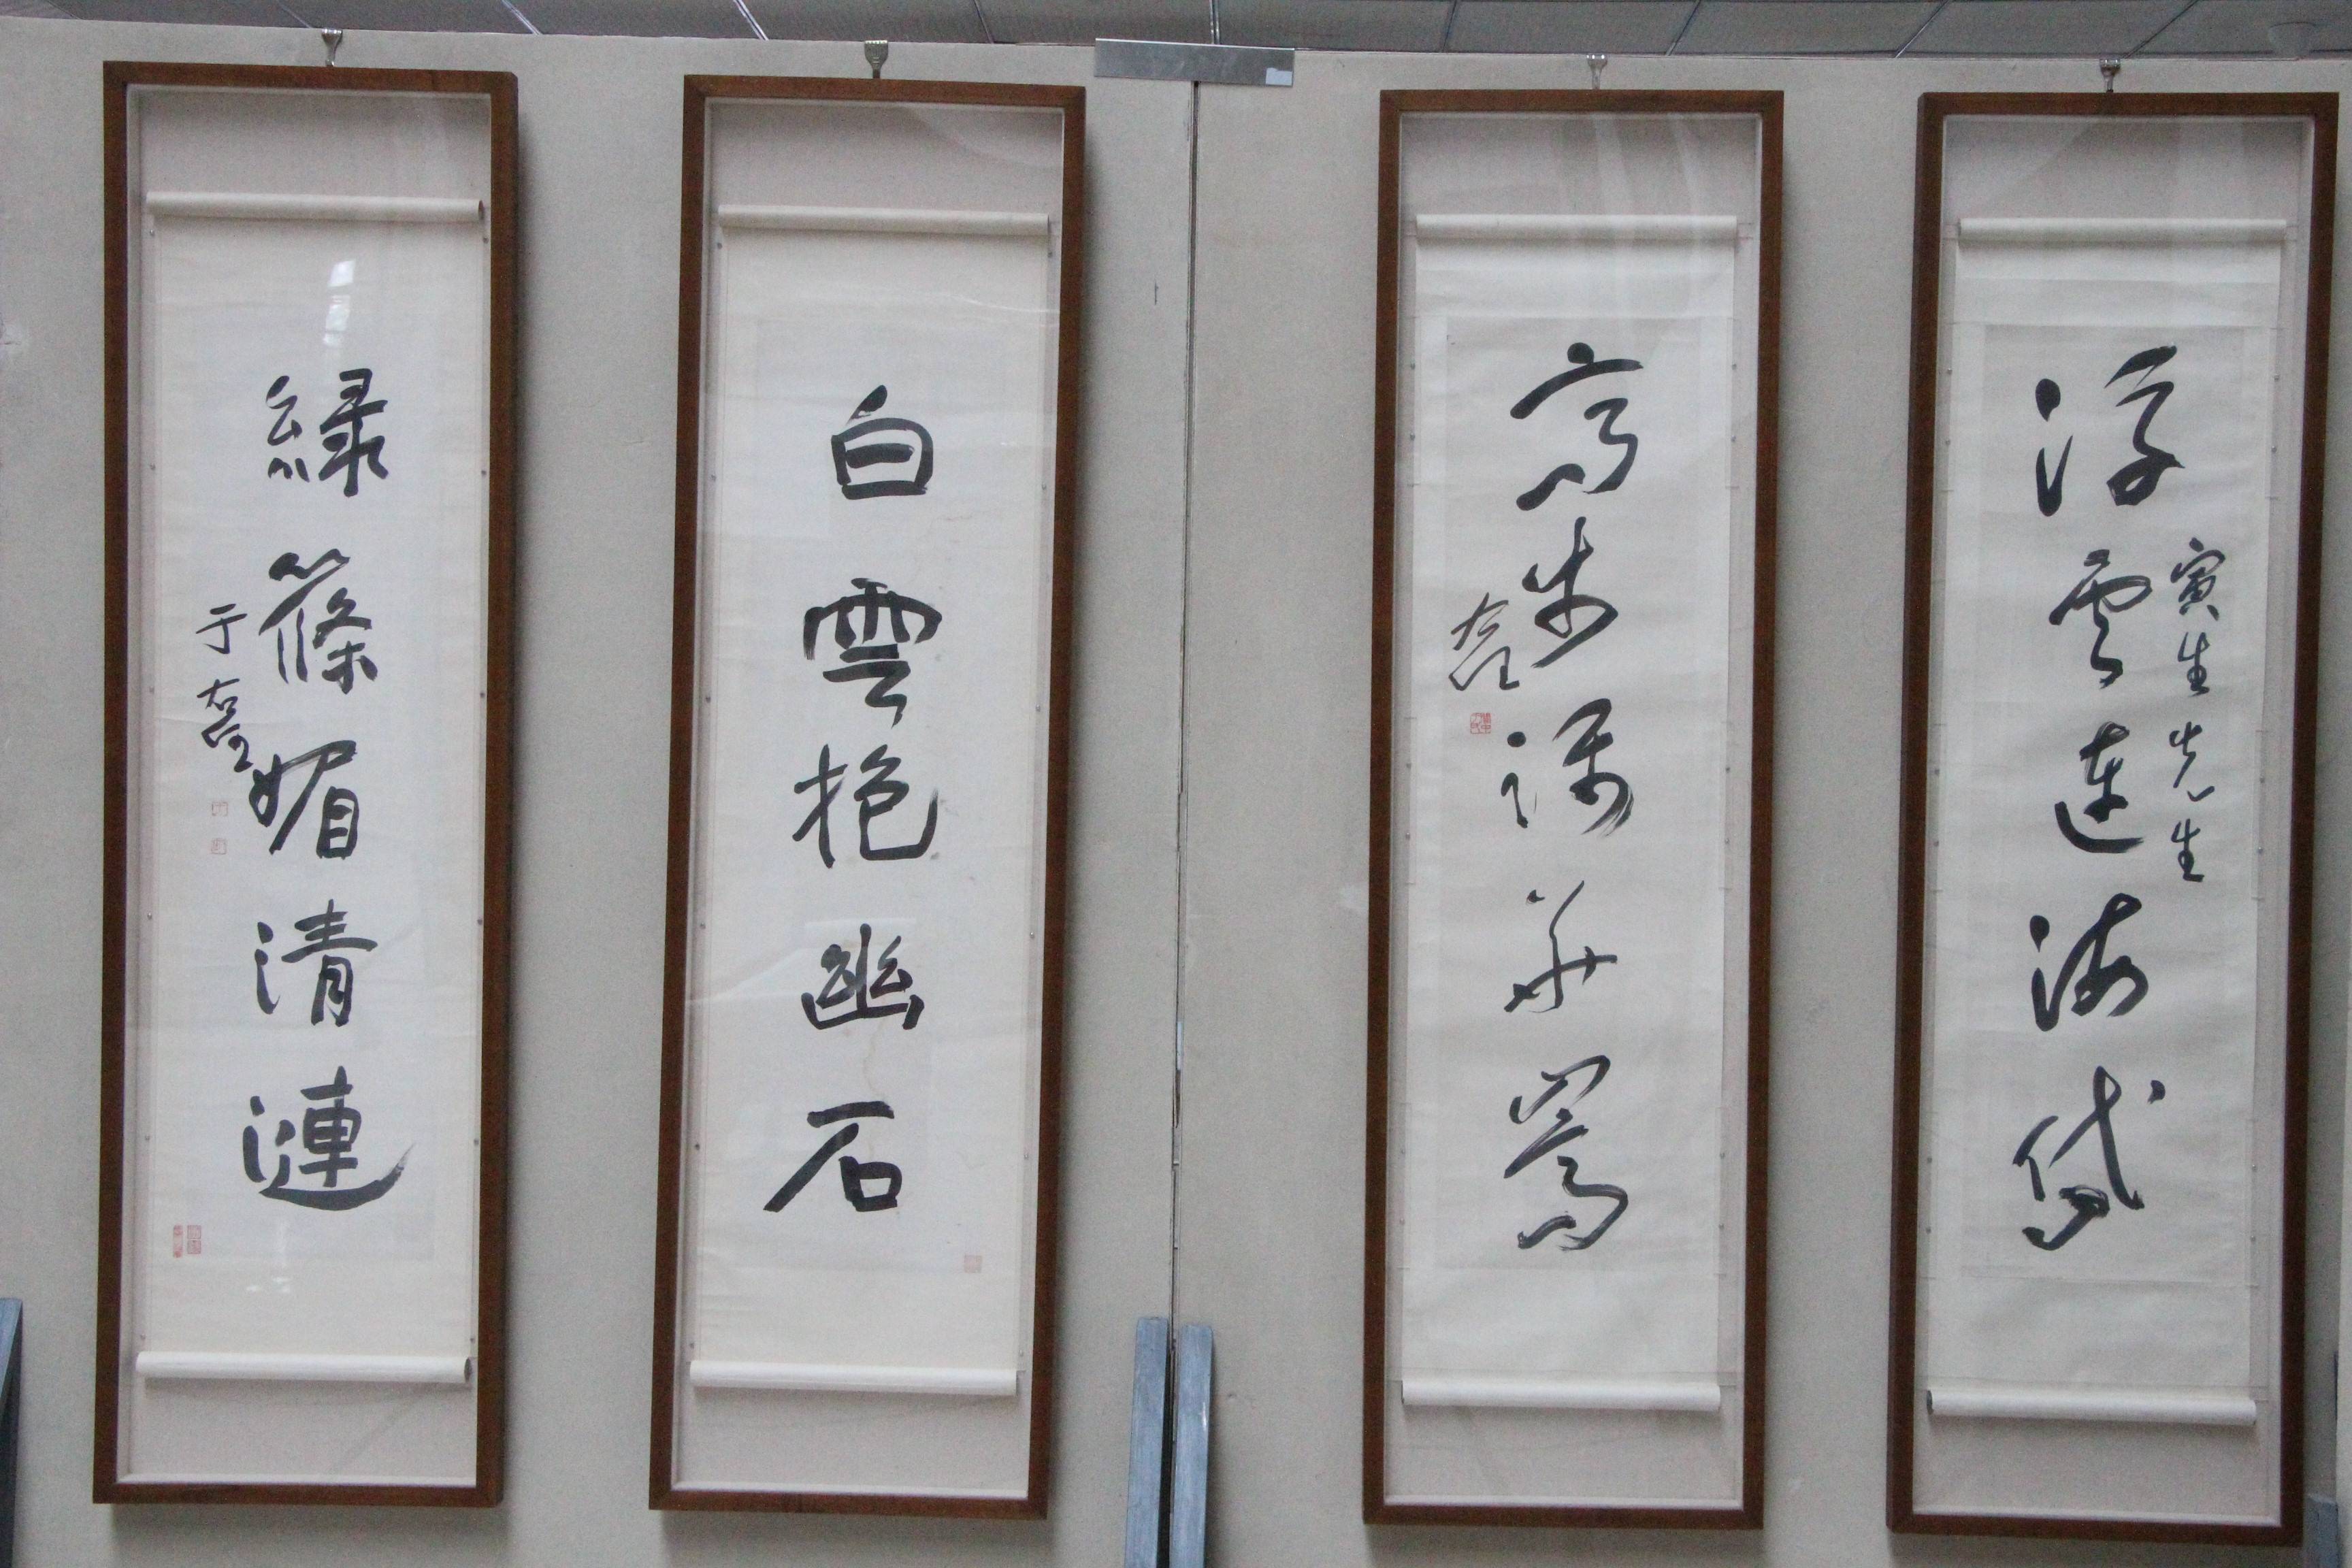 寅生先生
浮雲連海岱
高步華嵩
右任
白雲抱幽石
綠篠媚清漣
于右任